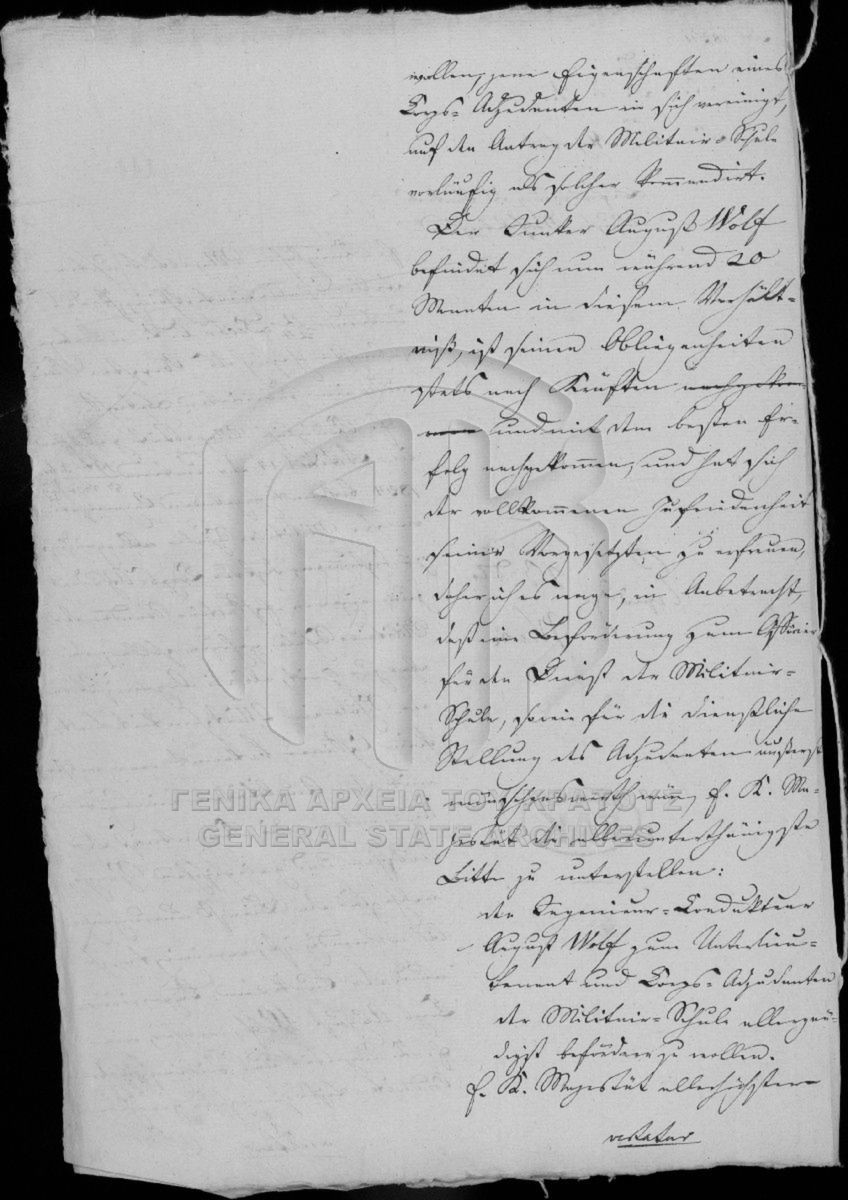 wollen, jene Eigenschaften eines
Corps-Adjudanten in sich vereinigt,
auf den Antrag der Militair-Schule
vorläufig als solcher kommandirt.
Der Junker August Wolf
befindet sich nun während 20
Monaten in diesem Verhält-
niß, ist seinen Obliegenheiten
stets nach Kräften nachgekom-
men und mit dem besten Er-
folg nachgekommen, und hat sich
der vollkommenen Zufriedenheit
seiner Vorgesetzten zu erfreuen,
daher ich es wage, in Anbetracht,
daß eine Beförderung zum Officier
für den Dienst der Militair-
Schule, sowie für die dienstliche
Stellung des Adjudanten äußerst
wünschenswerth wäre, E. K. Ma-
jestät die allerunterthänigste
Bitte zu unterstellen:
den Ingenieur-Condukteur
August Wolf zum Unterlieu-
tenant und Corps-Adjudanten
der Militair-Schule allergnä-
digst befördern zu wollen.
E. K. Majestät allerhöchsten
ΓΕΝΙΚΑ ΑΡΧΕΙΑ ΤΟΥ ΚΡΑΤΟΥΣ
GENERAL STATE ARCHIVES